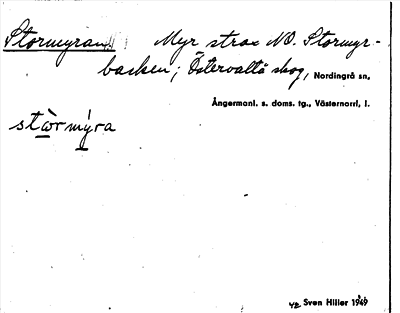 Stormyran Myr strax NO. Stormyr-
backen; Östervalta skog, Nordingrå sn,
Ångermanl. s. doms. tg., Västernorrl, l.
stòrmýra
42 Sven Hiller 1949